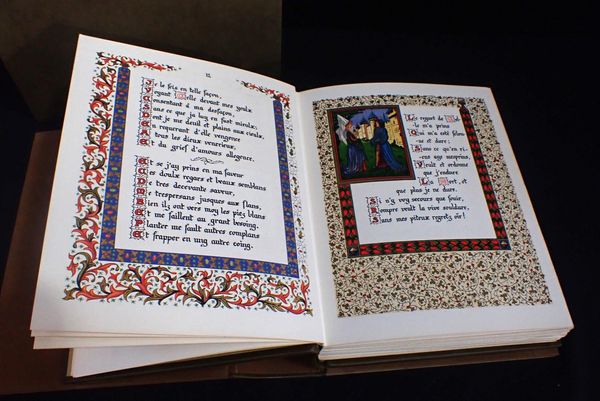 12
Je le feis en telle façon,
Voyant Celle devant mes yeulx
Consentant a ma desfaçon,
Sans ce que ja luy en fust mieulx;
Dont je me dueil et plains aux cieulx,
En requerant d'elle vengence
A tous les dieux venerieux,
Et du grief d'amours allegence.
Et se j'ay prins en ma faveur
Ces doulx regars et beaux semblans
De tres decevante saveur,
Me trespersans jusques aux flans,
Bien ilz ont vers moy les piez blans
Et me faillent au grant besoing.
Planter me fault autres complans
Et frapper en ung autre coing.
Le regart de
le m'a prins
Qui m'a esté felon-
ne et dure;
Sans ce qu'en ri-
ens aye mesprins,
Veult et ordonne
que j'endure
La Mort, et
que plus je ne dure.
Si n'y voy secours que fouir,
Rompre veult la vive souldure,
Sans mes piteux regretz oïr!